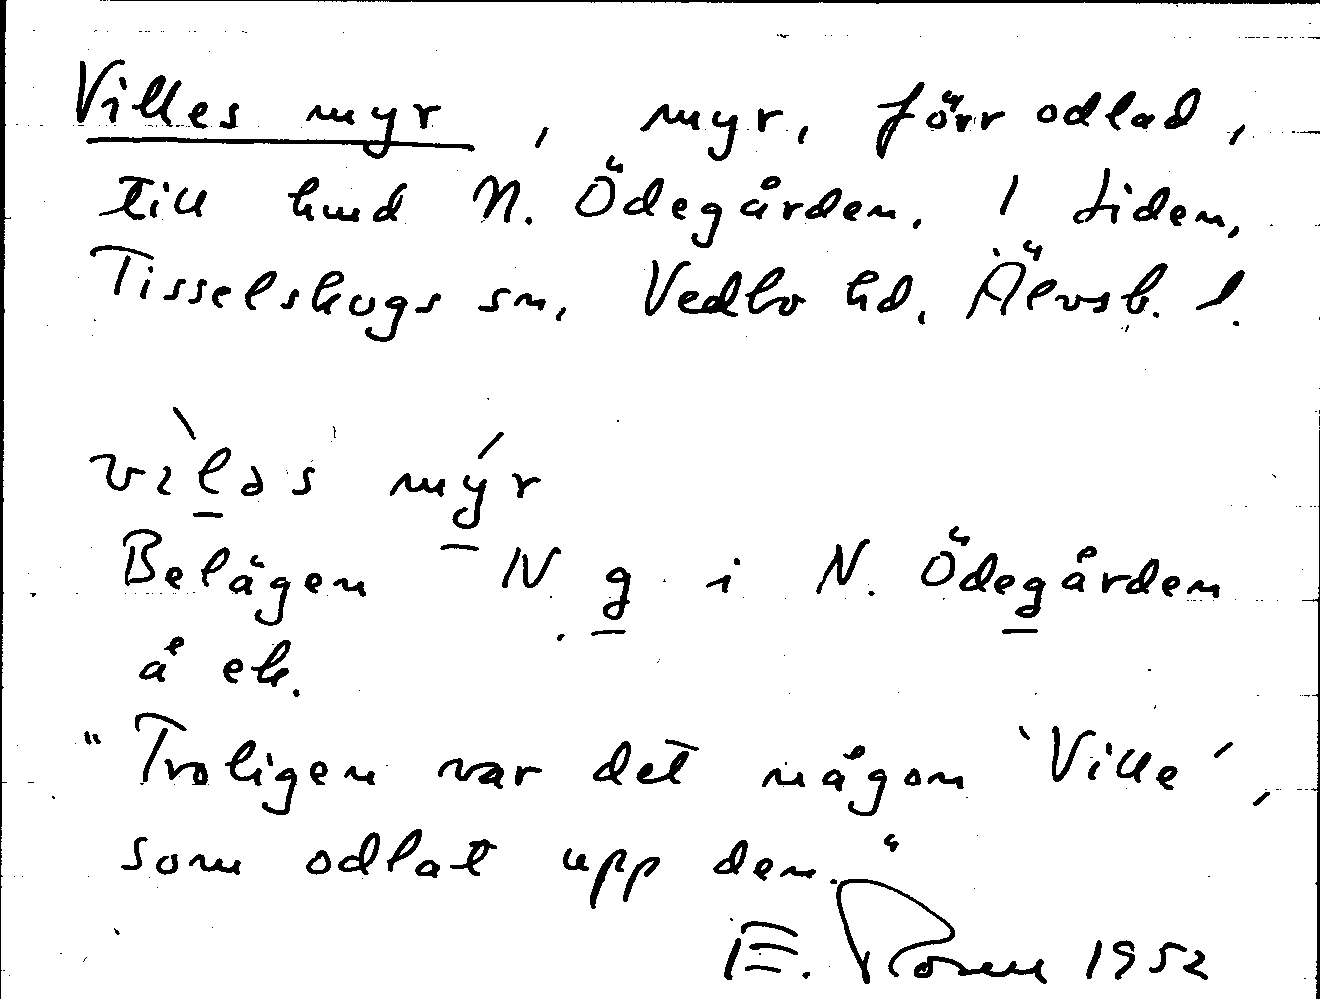 Villes myr, myr, förr odlad,
till hmd N. Ödegården, 1 Liden,
Tisselskogs sn, Vedbo hd, Älvsb. l.
vìləs mýr
Belägen N g i N. Ödegården
å ek.
"Troligen var det någon 'Ville',
som odlat upp den."
E. Rosell 1952